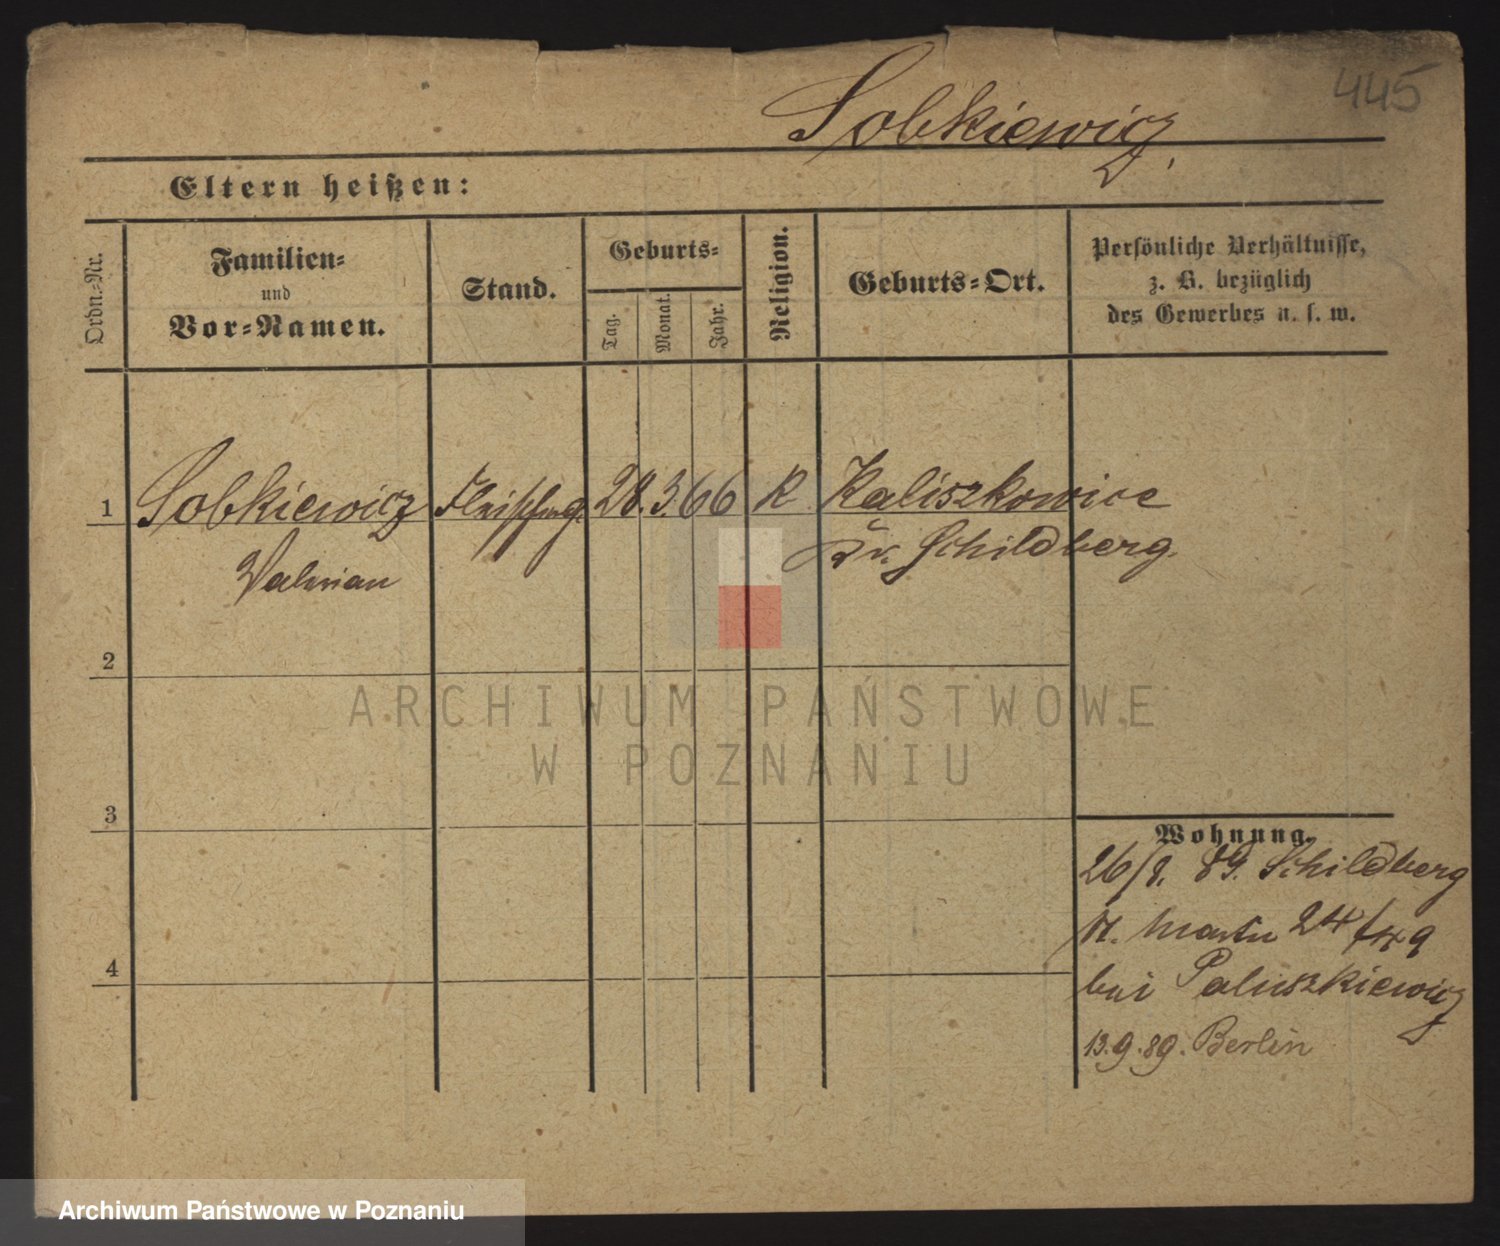 445
Sobkiewicz
Eltern heißen:
Ordn.-Nr.
Familien-
und
Vor-Namen.
Stand.
Geburts-
Tag.
Monat.
Jahr.
Religion.
Geburts-Ort.
Persönliche Verhältnisse,
z. B. bezüglich
des Gewerbes u. s. w.
1 Sobkiewicz Fleischerg. 28. 3. 66 R Kaliszkowice
Valerian Kr. Schildberg.
2
3
4
Wohnung.
26/8. 89. Schildberg
St. Martin 24/
bei Paluszkiewicz
13.9.89. Berlin
ARCHIWUM PAŃSTWOWE
W POZNANIU
Archiwum Państwowe w Poznaniu